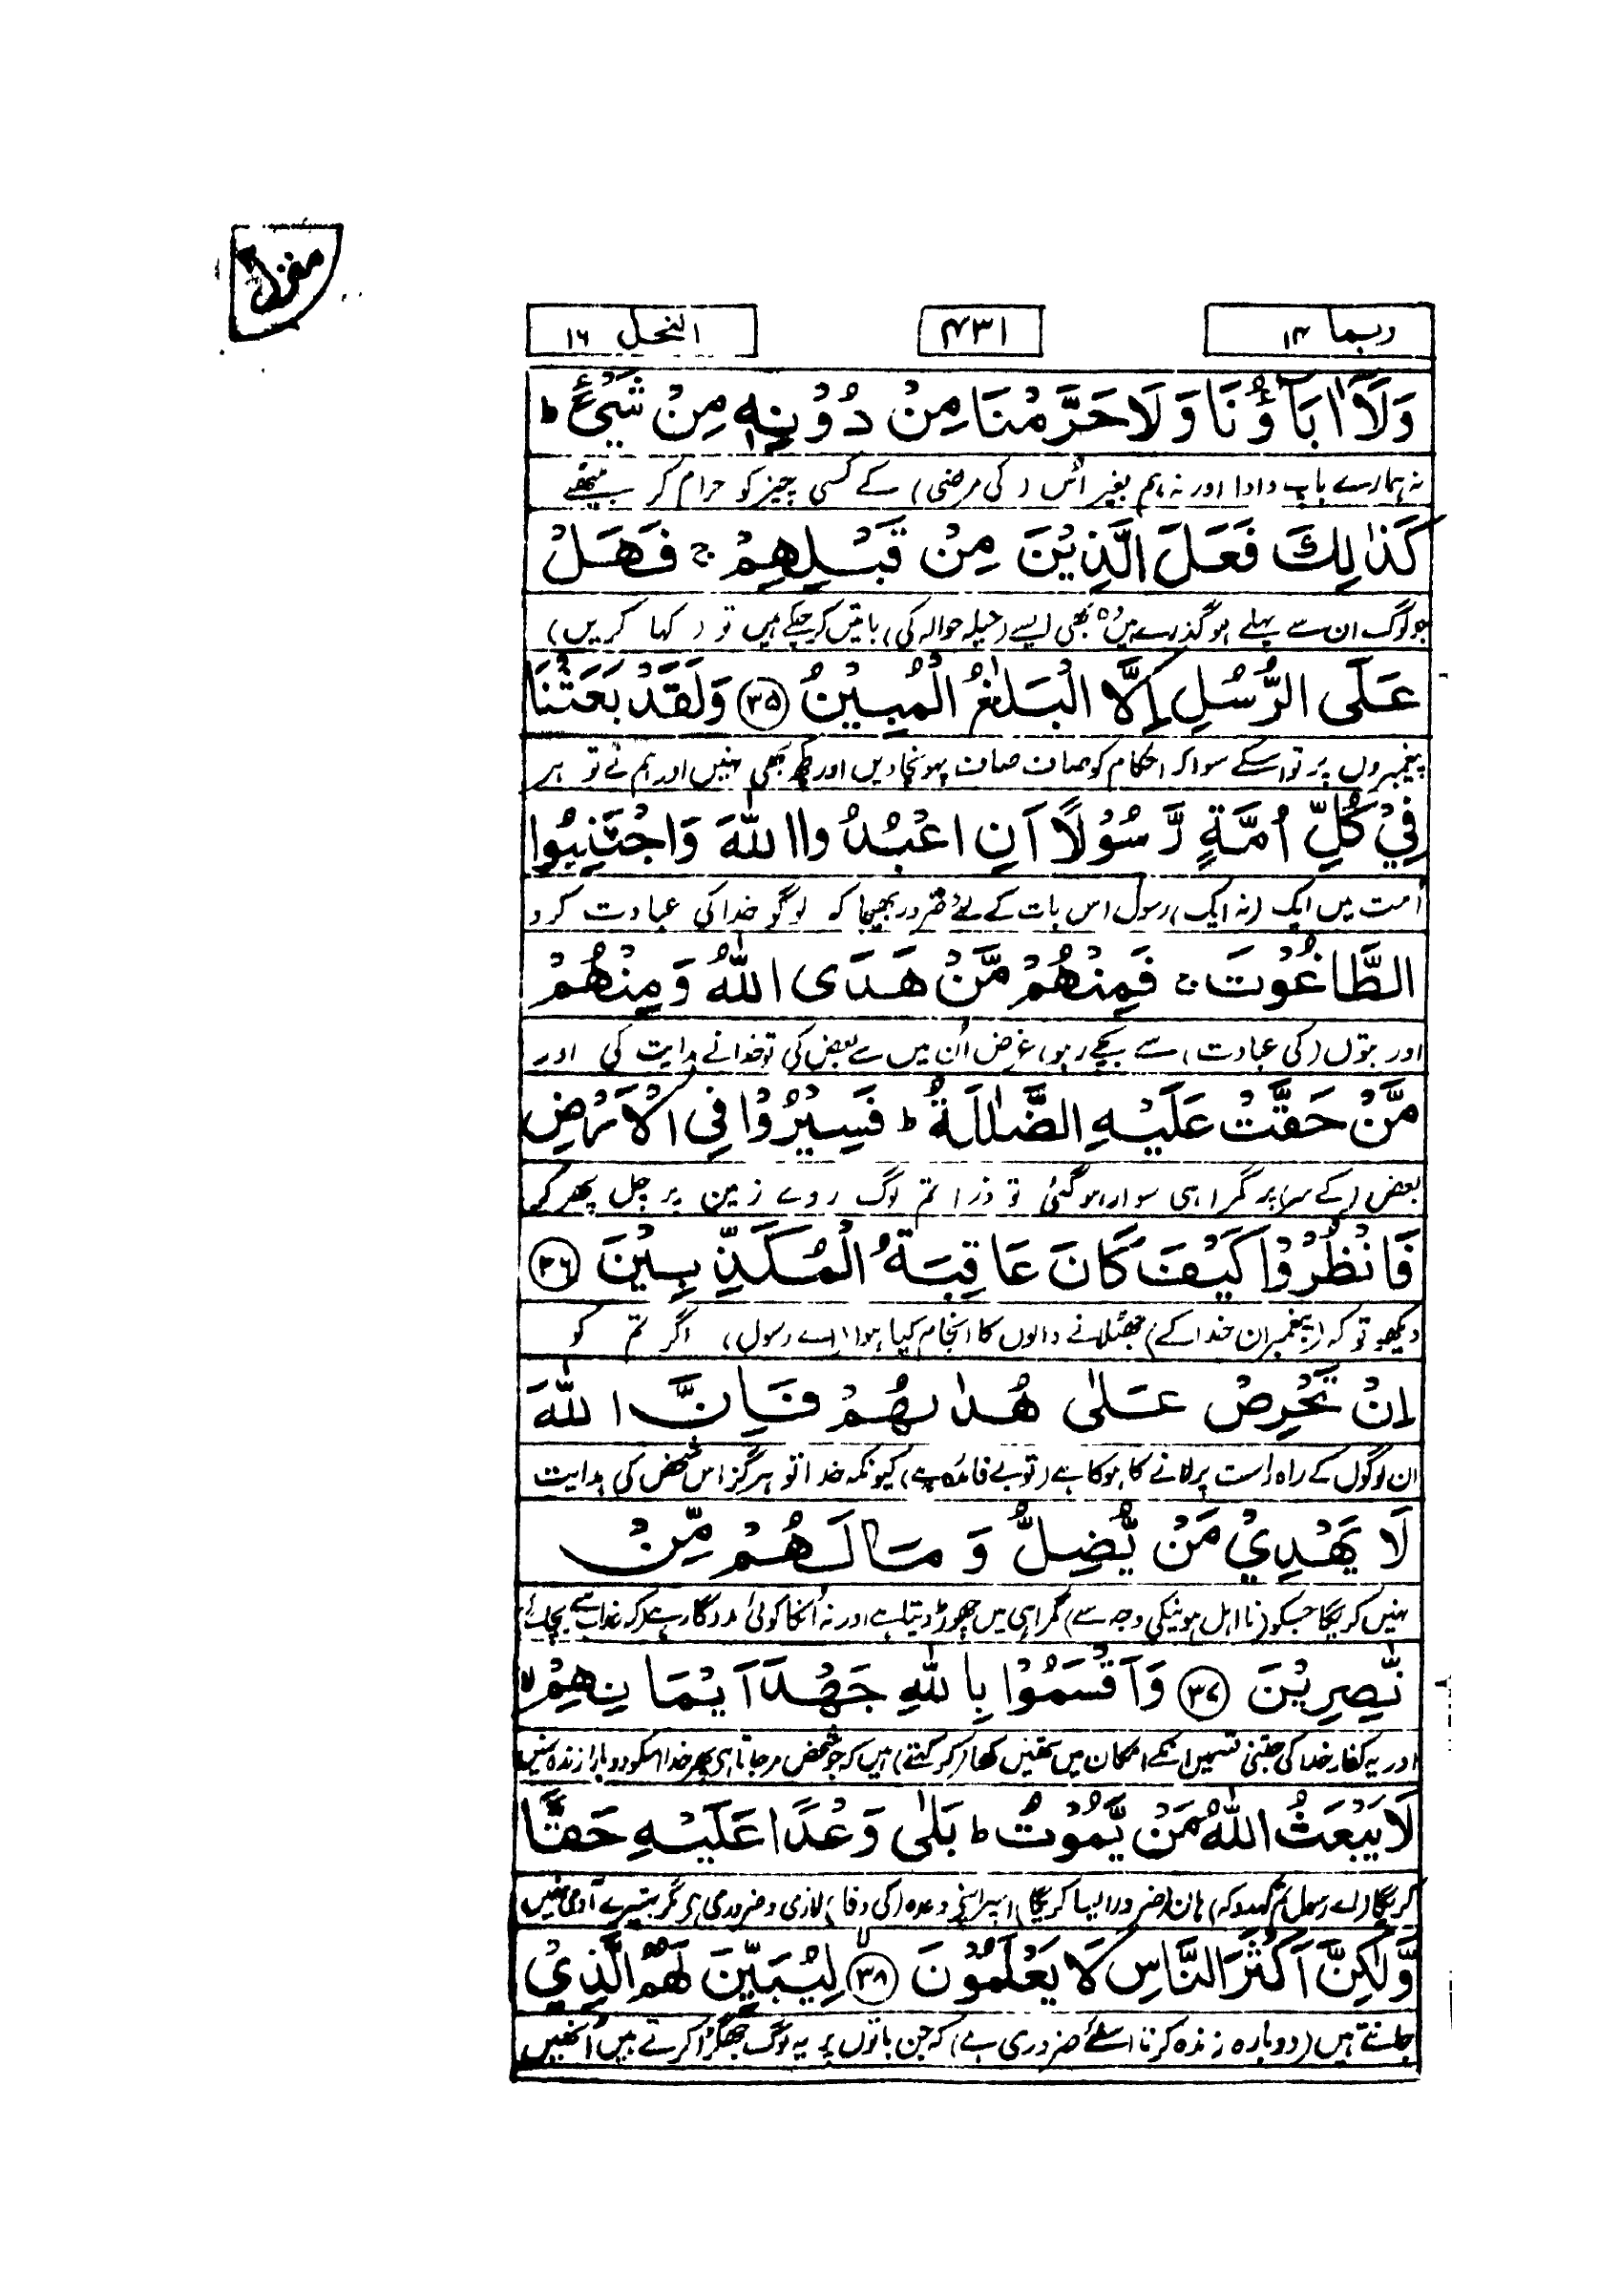 منزل ۳
ربما ۱۴
۴۳۱
النحل ۱۶
وَلَاۤ اٰبَآؤُنَا وَلَا حَرَّمْنَا مِنْ دُوْنِهٖ مِنْ شَيْءٍ ؕ
نہ ہمارے باپ دادا اور نہ ہم بغیر اُس (کی مرضی) کے کسی چیز کو حرام کر بیٹھتے
كَذٰلِكَ فَعَلَ الَّذِيْنَ مِنْ قَبْلِهِمْ ۚ فَهَلْ
جو لوگ ان سے پہلے ہو گذرے ہیں وہ بھی ایسے (حیلہ حوالہ کی) باتیں کر چکے ہیں تو (کہا کریں)
عَلَى الرُّسُلِ اِلَّا الْبَلٰغُ الْمُبِيْنُ ﴿۳۵﴾ وَلَقَدْ بَعَثْنَا
پیغمبروں پر تو اسکے سوا کہ احکام کو صاف صاف پہونچا دیں اور کچھ بھی نہیں اور ہم نے تو ہر
فِيْ كُلِّ اُمَّةٍ رَّسُوْلًا اَنِ اعْبُدُوا اللّٰهَ وَاجْتَنِبُوا
اُمت میں ایک (نہ ایک) رسول اس بات کے لئے ضرور بھیجا کہ لوگو خدا کی عبادت کرو
الطَّاغُوْتَ ۚ فَمِنْهُمْ مَّنْ هَدَى اللّٰهُ وَمِنْهُمْ
اور بتوں (کی عبادت) سے بچے رہو، غرض اُن میں سے بعض کی تو خدا نے ہدایت کی اور
مَّنْ حَقَّتْ عَلَيْهِ الضَّلٰلَةُ ؕ فَسِيْرُوْا فِى الْاَرْضِ
بعض (کے سر) پر گمراہی سوار ہو گئی تو ذرا تم لوگ روے زمین پر چل پھر کر
فَانْظُرُوْا كَيْفَ كَانَ عَاقِبَةُ الْمُكَذِّبِيْنَ ﴿۳۶﴾
دیکھو تو کہ (پیغمبران خدا کے) جھٹلانے والوں کا انجام کیا ہوا (اے رسول) اگر تم کو
اِنْ تَحْرِصْ عَلٰى هُدٰىهُمْ فَاِنَّ اللّٰهَ
ان لوگوں کے راہ راست پر لانے کا ہوکا ہے (تو بے فائدہ ہے) کیونکہ خدا تو ہرگز اس شخص کی ہدایت
لَا يَهْدِيْ مَنْ يُّضِلُّ وَمَا لَهُمْ مِّنْ
نہیں کریگا جسکو (نا اہل ہونیکی وجہ سے) گمراہی میں چھوڑ دیتا ہے اور نہ اُنکا کوئی مددگار ہے (کہ عذاب سے بچائے)
نّٰصِرِيْنَ ﴿۳۷﴾ وَاَقْسَمُوْا بِاللّٰهِ جَهْدَ اَيْمَانِهِمْ ۙ
اور یہ کفار خدا کی جتنی قسمیں انکے امکان میں تھیں کھا (کر کہتے) ہیں کہ جو شخص مر جاتا ہی پھر خدا اسکو دوبارا زندہ نہیں
لَا يَبْعَثُ اللّٰهُ مَنْ يَّمُوْتُ ؕ بَلٰى وَعْدًا عَلَيْهِ حَقًّا
کریگا (اے رسول تم کہدو کہ) ہاں (ضرور ایسا کریگا) اسپر اپنے وعدہ (کی وفا) لازمی و ضروری ہی مگر بہتیرے آدمی نہیں
وَّلٰكِنَّ اَكْثَرَ النَّاسِ لَا يَعْلَمُوْنَ ﴿۳۸﴾ لِيُبَيِّنَ لَهُمُ الَّذِيْ
جانتے ہیں (دوبارہ زندہ کرنا اسلئے ضروری ہے) کہ جن باتوں پر یہ لوگ جھگڑا کرتے ہیں اُنھیں